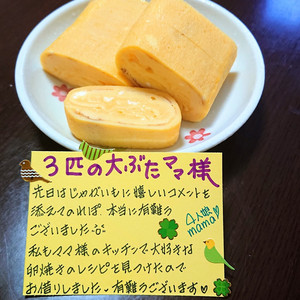 3匹の大ぶたママ様
先日はじゃがいもに嬉しいコメントを
添えてのれぽ、本当に有難う
ございました
私もママ様のキッチンで大好きな
卵焼きのレシピを見つけたので
お借りしました。有難うございます♡
4人娘
mama♡